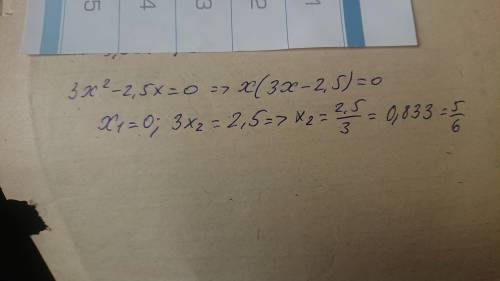 5 4 3 2 1
3x²-2,5x=0 => x(3x-2,5)=0
x₁=0; 3x₂=2,5=> x₂=2,5/3=0,833=5/6